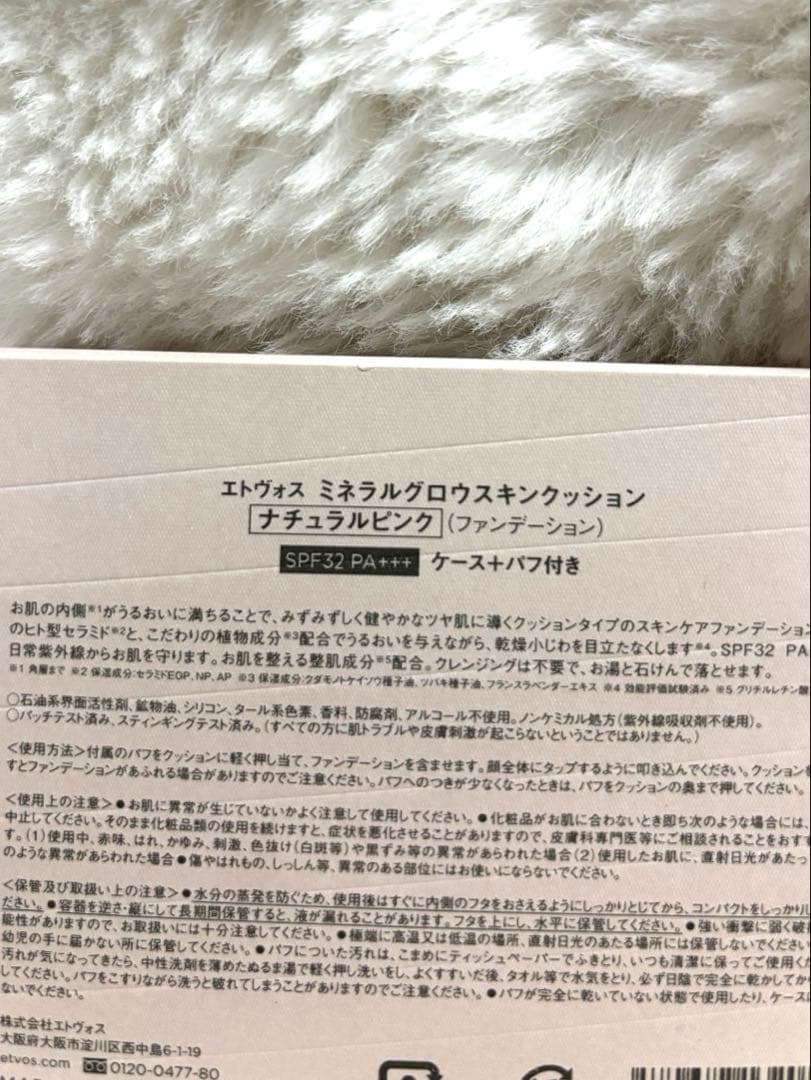 エトヴォス ミネラルグロウスキンクッション
ナチュラルピンク (ファンデーション)
SPF32 PA+++ ケース+パフ付き
お肌の内側※1がうるおいに満ちることで、みずみずしく健やかなツヤ肌に導くクッションタイプのスキンケアファンデーション
のヒト型セラミド※2と、こだわりの植物成分※3配合でうるおいを与えながら、乾燥小じわを目立たなくします※4。SPF32 PA
日常紫外線からお肌を守ります。お肌を整える整肌成分※5配合。クレンジングは不要で、お湯と石けんで落とせます。
※1 角層まで ※2 保湿成分:セラミドEOP、NP、AP ※3 保湿成分:クダモノトケイソウ種子油、ツバキ種子油、フランスラベンダーエキス ※4 効能評価試験済み ※5 グリチルレチン酸
○石油系界面活性剤、鉱物油、シリコン、タール系色素、香料、防腐剤、アルコール不使用。ノンケミカル処方(紫外線吸収剤不使用)。
○パッチテスト済み、スティンギングテスト済み。(すべての方に肌トラブルや皮膚刺激が起こらないということではありません。)
<使用方法>付属のパフをクッションに軽く押し当て、ファンデーションを含ませます。顔全体にタップするように叩き込んでください。クッションを
すとファンデーションがあふれる場合がありますのでご注意ください。パフへのつきが少なくなったときは、パフをクッションの奥まで押してください。
<使用上の注意>●お肌に異常が生じていないかよく注意して使用してください。●化粧品がお肌に合わないとき即ち次のような場合には、
中止してください。そのまま化粧品類の使用を続けますと、症状を悪化させることがありますので、皮膚科専門医等にご相談されることをおす
す。(1)使用中、赤味、はれ、かゆみ、刺激、色抜け(白斑等)や黒ずみ等の異常があらわれた場合(2)使用したお肌に、直射日光があたっ
のような異常があらわれた場合●傷やはれもの、しっしん等、異常のある部位にはお使いにならないでください。
<保管及び取扱い上の注意>●水分の蒸発を防ぐため、使用後はすぐに内側のフタをおさえるようにしっかりとじてから、コンパクトをしっかりし
ださい。●容器を逆さ・縦にして長期間保管すると、液が漏れることがあります。フタを上にし、水平に保管してください。●強い衝撃に弱く破
能性がありますので、お取扱いには十分注意してください。●極端に高温又は低温の場所、直射日光のあたる場所には保管しないでください。
幼児の手に届かない所に保管してください。●パフについた汚れは、こまめにティッシュペーパーでふきとり、いつも清潔に保ってご使用くだ
汚れが気になってきたら、中性洗剤を薄めたぬるま湯で軽く押し洗いをし、よくすすいだ後、タオル等で水気をとり、必ず日陰で完全に乾かしてか
してください。パフをこすりながら洗うと破れてしまうことがありますのでご注意ください。●パフが完全に乾いていない状態で使用したり、ケースに
ないでください。
株式会社エトヴォス
大阪府大阪市淀川区西中島6-1-19
etvos.com 0120-0477-80